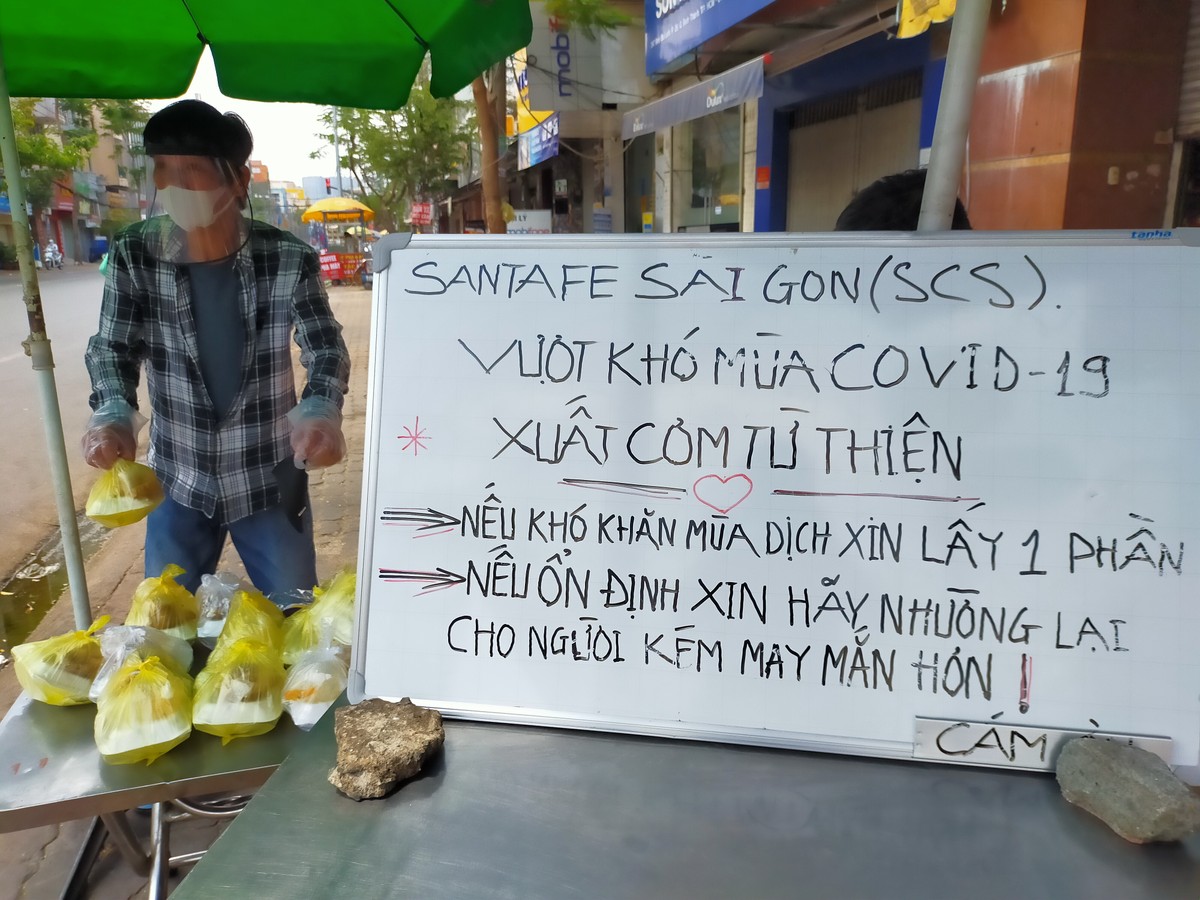 mobif
Dulux
tanha
SANTAFE SÀI GON (SCS).
VƯỢT KHÓ MÙA COVID-19
* XUẤT CƠM TỪ THIỆN
NẾU KHÓ KHĂN MÙA DỊCH XIN LẤY 1 PHẦN
NẾU ỔN ĐỊNH XIN HÃY NHƯỜNG LẠI
CHO NGƯỜI KÉM MAY MẮN HƠN !
CÁM